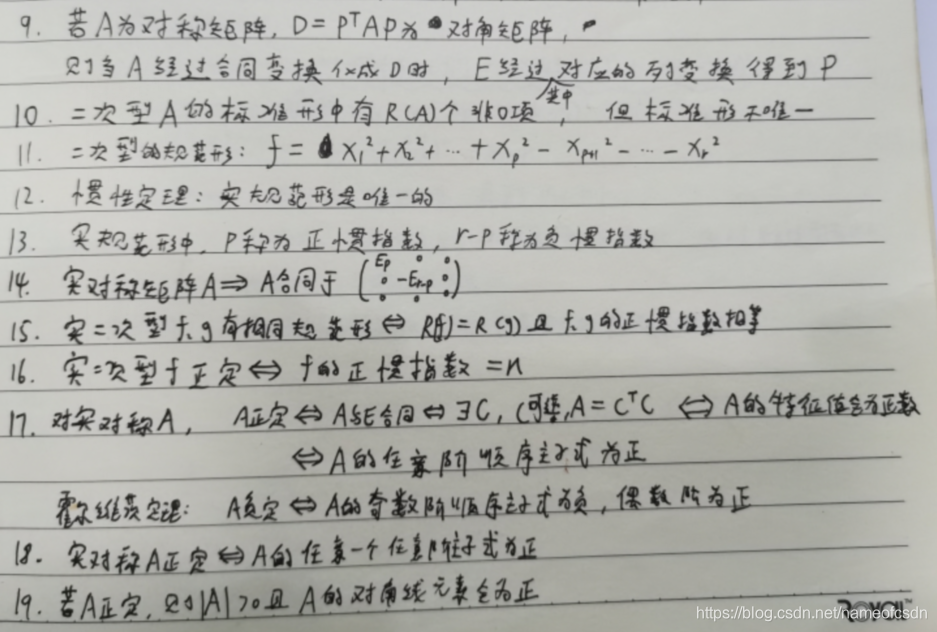 9. 若A为对称矩阵, D=PᵀAP为对角矩阵,
则当A经过合同变换化成D时, E经过其中对应的列变换得到P
10. 二次型A的标准形中有R(A)个非0项, 但标准形不唯一
11. 二次型的规范形: f= x₁²+x₂²+…+xₚ²-xₚ₊₁²-…-xᵣ²
12. 惯性定理: 实规范形是唯一的
13. 实规范形中, p称为正惯指数, r-p称为负惯指数
14. 实对称矩阵A⇒A合同于 (Eₚ 0 0
0 -Eᵣ₋ₚ 0
0 0 0)
15. 实二次型f、g有相同规范形⇔R(f)=R(g)且f、g的正惯指数相等
16. 实二次型f正定⇔f的正惯指数=n
17. 对实对称A, A正定⇔A与E合同⇔∃C, (可逆), A=CᵀC ⇔A的特征值全为正数
⇔A的任意阶顺序主子式为正
霍尔维茨定理: A负定⇔A的奇数阶顺序主子式为负, 偶数阶为正
18. 实对称A正定⇔A的任意一个任意阶主子式为正
19. 若A正定, 则|A|>0且A的对角线元素全为正
https://blog.csdn.net/nameofcsdn